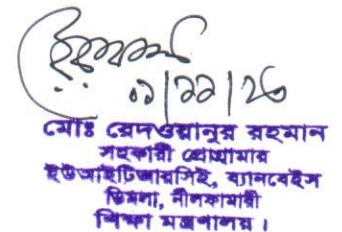 ০১/১১/২৩
মোঃ রেদওয়ানুর রহমান
সহকারী প্রোগ্রামার
ইউআইটিআরসিই, ব্যানবেইস
ডিমলা, নীলফামারী
শিক্ষা মন্ত্রণালয়।